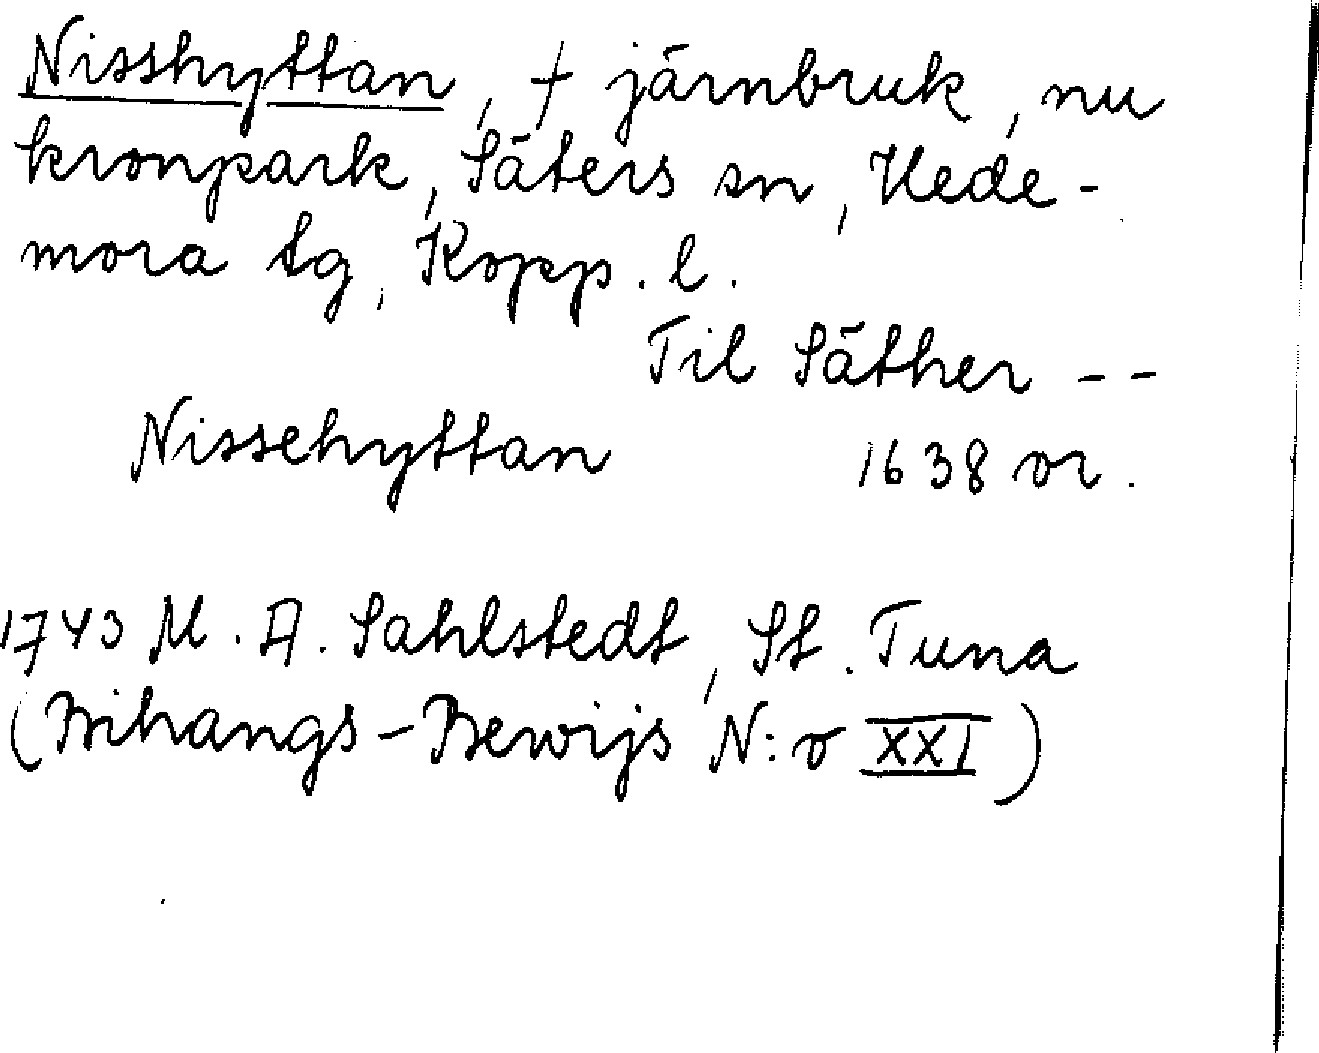 Nisshyttan, † järnbruk, nu
kronpark, Säters sn, Hede-
mora tg, Kopp. l.
Til Säther --
Nissehyttan 1638 or.
1743 M. A. Sahlstedt, St. Tuna
(Bihangs-Bewijs N:o XXI)